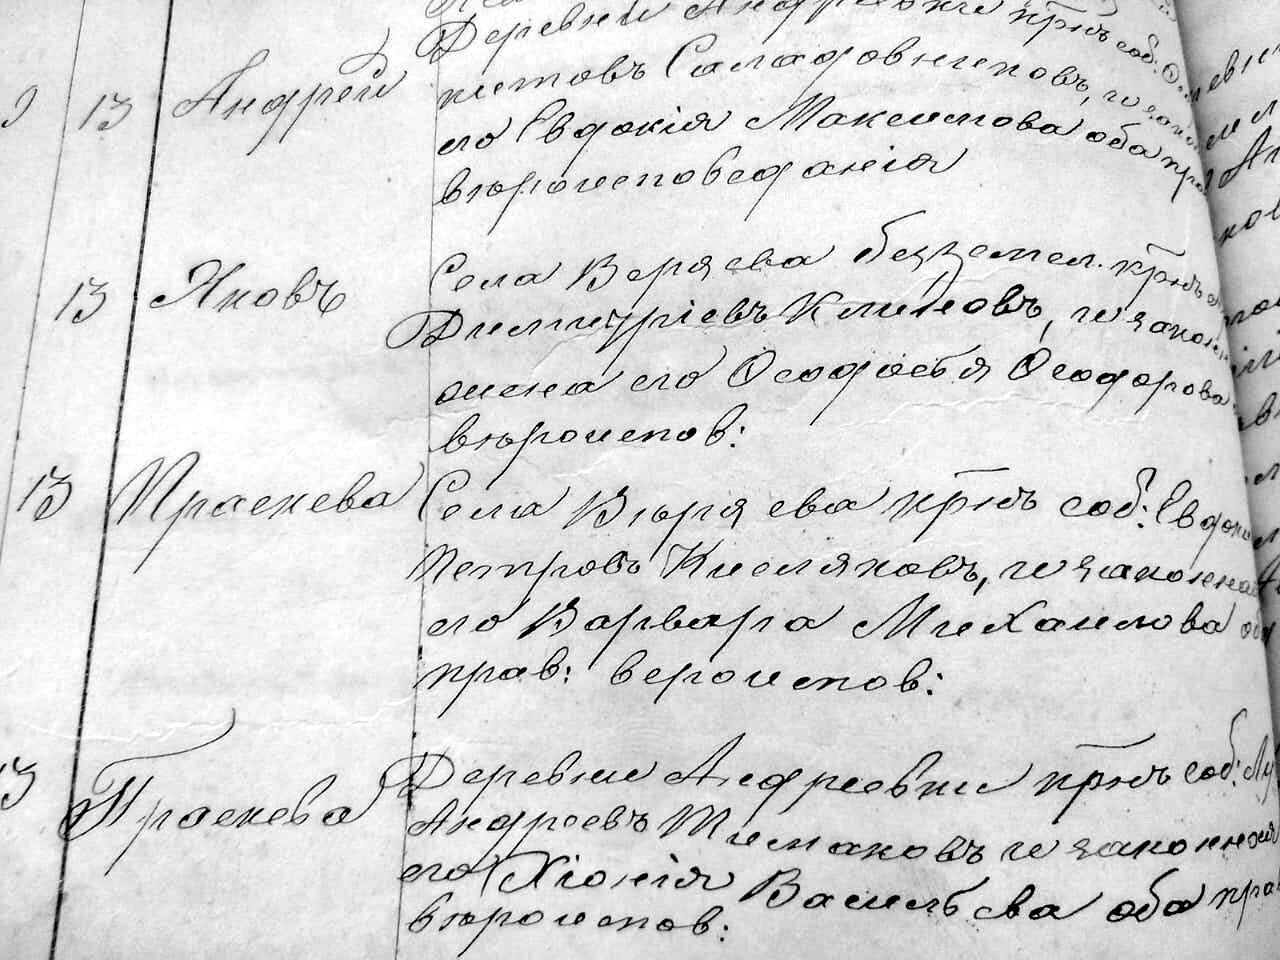 Деревни Андреевки крнъ соб:
13 Андрей
китовъ Сападовниковъ, и закон
его Евдокія Максимова оба пра
вѣроисповеданія
13 Яковъ
Села Веряева безземел. крнъ
Димитріевъ Климовъ, и закон
жена его Ѳеодосья Ѳеодорова
вѣроиспов:
13 Праскева
Села Вѣряева крнъ соб: Евдоки
Петровъ Кисляковъ, и законная
его Варвара Михаилова оба
прав: вероиспов:
13 Праскева
Деревни Андреевки крнъ соб: Лу
Андреевъ Тимаковъ и законная
его Хіонія Васильева оба пра
вѣроиспов: